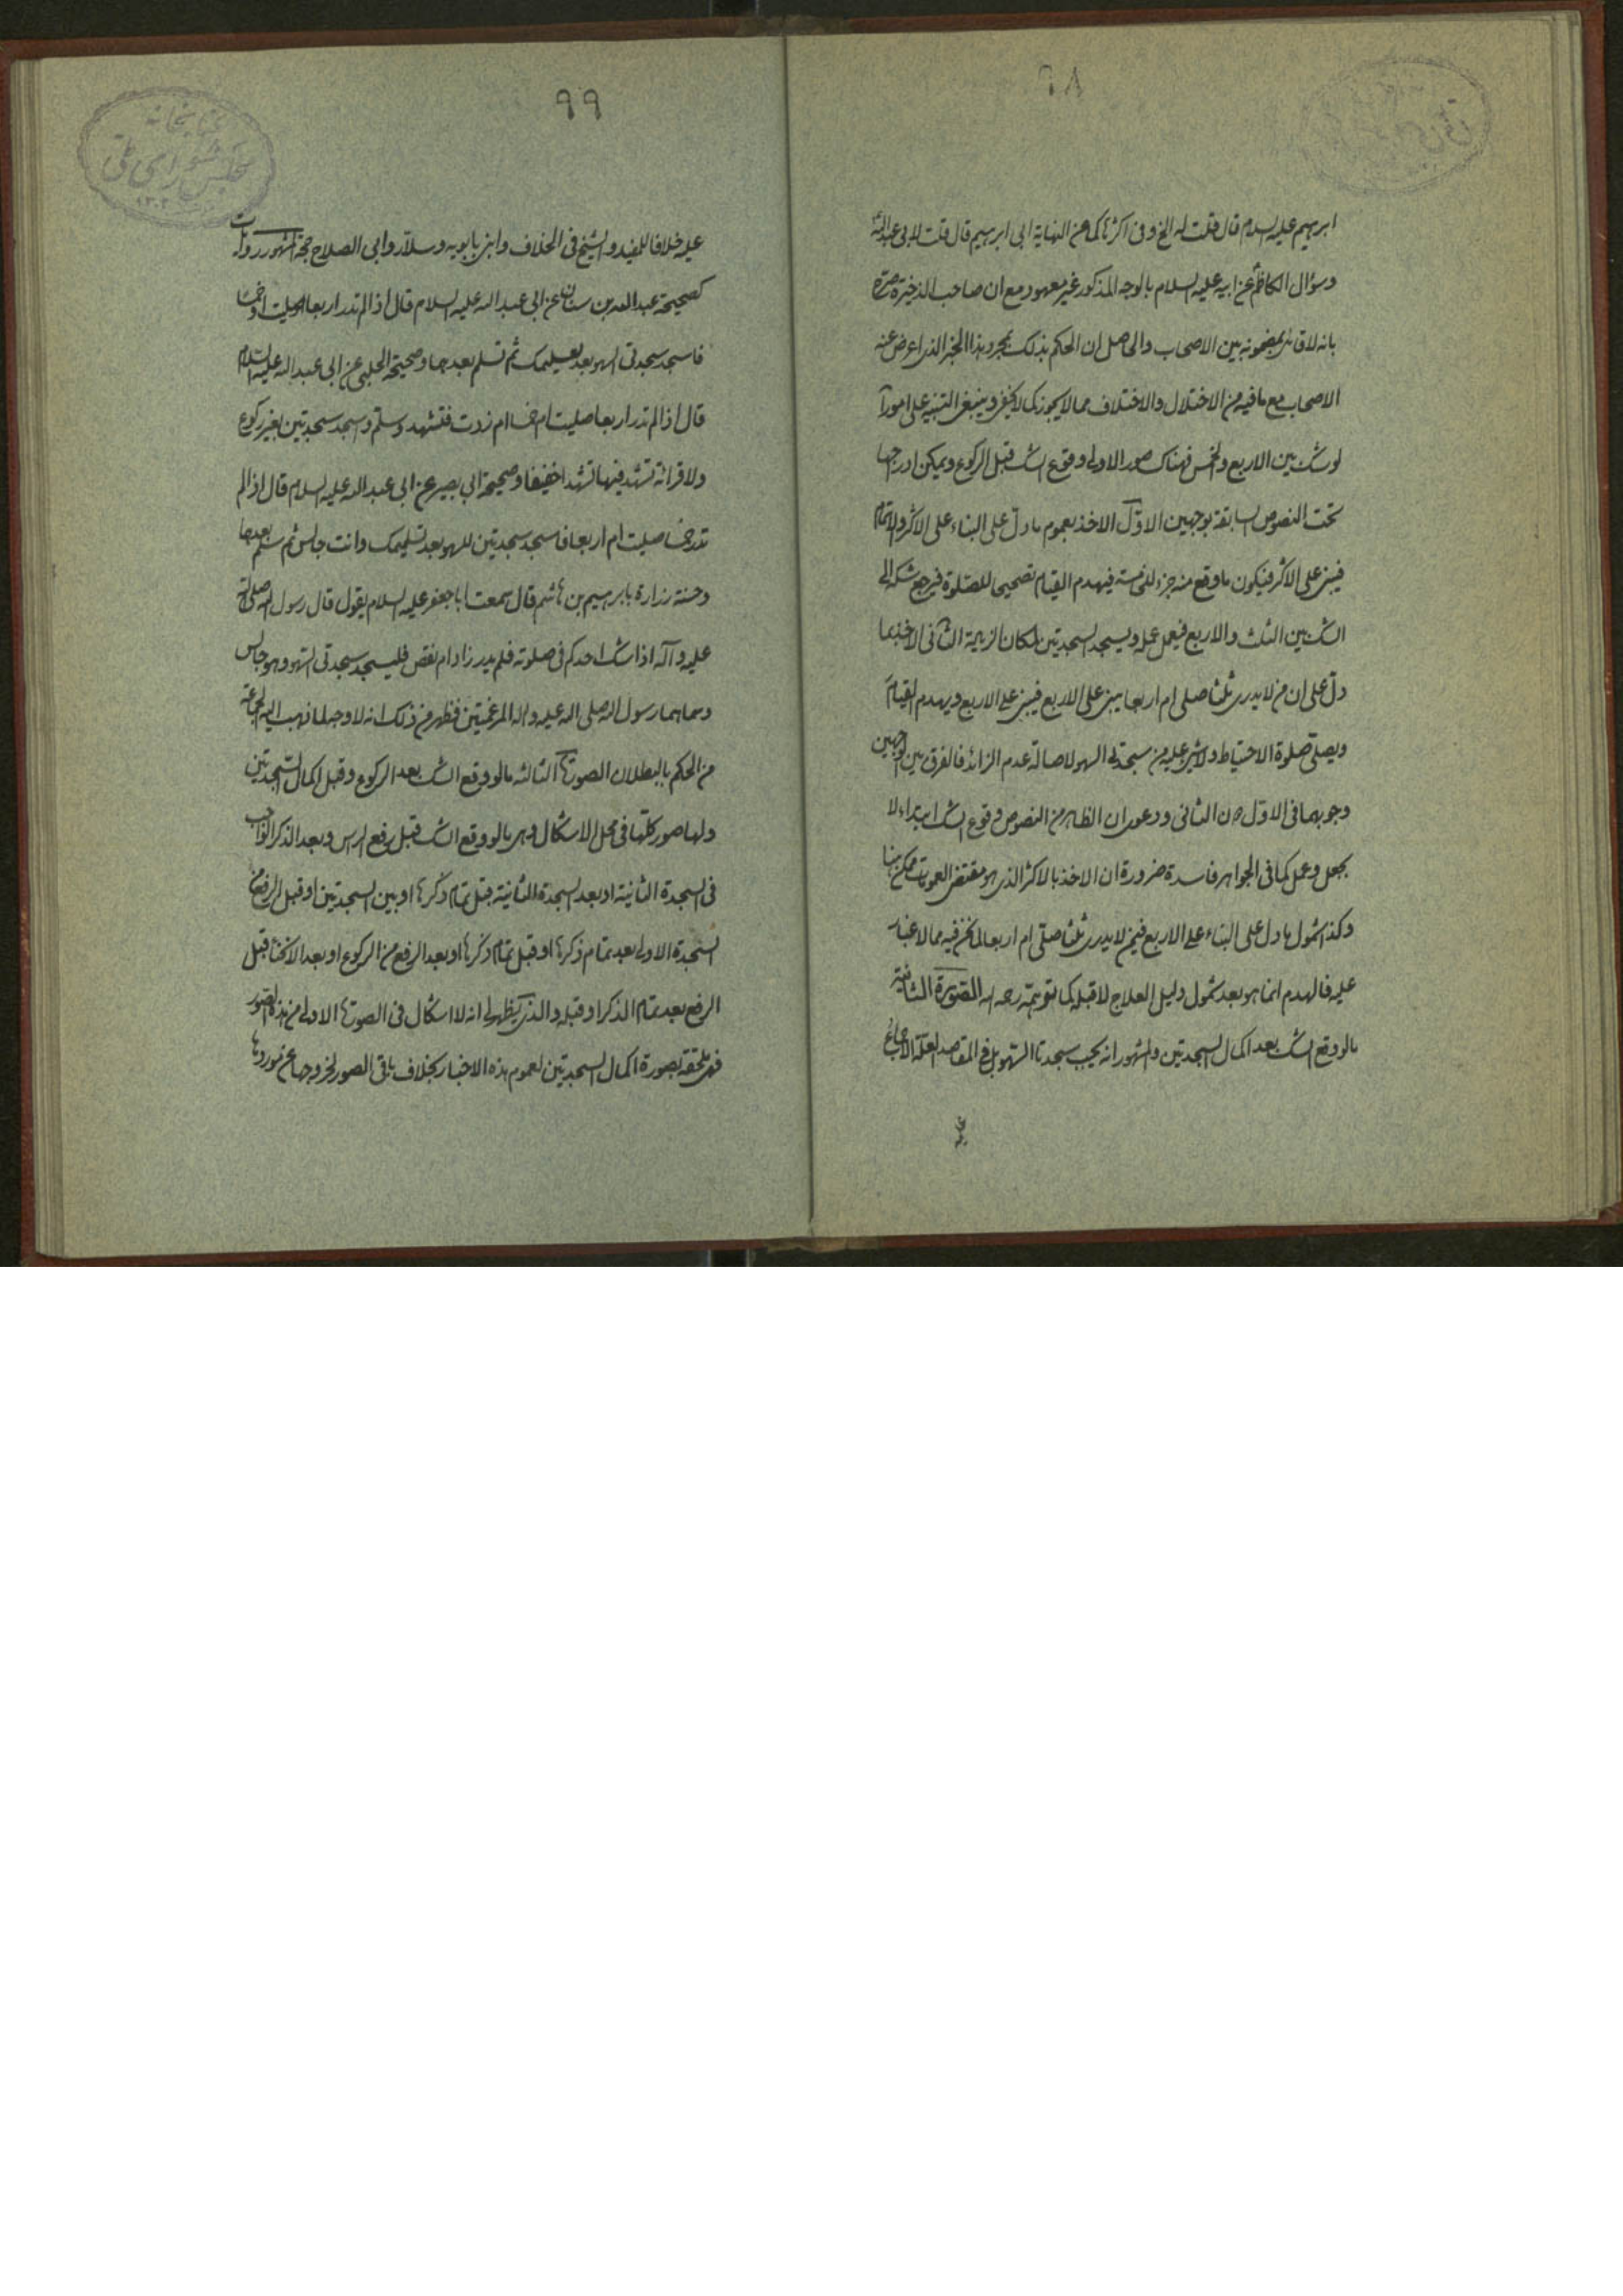 ٩٨
ابرهيم عليه السلام قال قلت له الخ وفى اكثرها كما عن النهاية ابى ابرهيم قال قلت لابى عبد الله
وسؤال الكاظم عن ابيه عليه السلام بالوجه المذكور غير معهود مع ان صاحب الذخيرة صرح
بانه لا قائل بمضمونه بين الاصحاب والحاصل ان الحكم بذلك بمجرد هذا الخبر الذى اعرض عنه
الاصحاب مع ما فيه من الاختلال والاختلاف مما لا يجوز كما لا يخفى وينبغى التنبيه على امور آ
لو شك بين الاربع والخمس فهناك صور الاولى وقوع الشك قبل الركوع ويمكن ادراجها
تحت النصوص السابقة بوجهين الاوّل الاخذ بعموم ما دلّ على البناء على الاكثر والاتمام
فيبنى على الاكثر فيكون ما وقع منه جزء للخامسة فيهدم القيام تصحيحا للصّلوة فيرجع شكه الى
الشك بين الثلث والاربع فيعمل عمله ويسجد السجدتين لمكان الزيادة الثانى الاخذ بما
دلّ على ان من لا يدرى ثلثا صلى ام اربعا يبنى على الاربع فيبنى على الاربع ويهدم القيام
ويصلى صلوة الاحتياط ولا شىء عليه من سجدتى السهو لاصالة عدم الزائد فالفرق بين الوجهين
وجوبهما فى الاوّل دون الثانى ودعوى ان الظاهر من النصوص وقوع الشك ابتداء لا
بجعل وعمل كما فى الجواهر فاسدة ضرورة ان الاخذ بالاكثر الذى هو مقتضى العمومات ممكن هنا
وكذا شمول ما دل على البناء على الاربع فيمن لا يدرى ثلثا صلّى ام اربعا لما نحن فيه مما لا غبار
عليه فالهدم انما هو بعد شمول دليل العلاج لا قبله كما توهمه رحمه الله الصّورة الثانية
ما لو وقع الشك بعد اكمال السجدتين والمشهور انه يجب سجدتا السّهو بل فى المقاصد العلية الاجماع
٩٩
عليه خلافا للمفيد والشيخ فى الخلاف وابن بابويه وسلّار وابى الصلاح حجة المشهور روايات
كصحيحة عبد الله بن سنان عن ابى عبد الله عليه السلام قال اذا لم تدر اربعا صليت او خمسا
فاسجد سجدتى السهو بعد تسليمك ثم تسلم بعدهما وصحيحة الحلبى عن ابى عبد الله عليه السّلام
قال اذا لم تدر اربعا صليت ام خمسا ام زدت فتشهد وسلّم واسجد سجدتين بغير ركوع
ولا قرائة تشهد فيهما تشهدا خفيفا وصحيحة ابى بصير عن ابى عبد الله عليه السلام قال اذا لم
تدر خمسا صليت ام اربعا فاسجد سجدتين للسهو بعد تسليمك وانت جالس ثم سلّم بعدهما
وحسنة زرارة بابرهيم بن هاشم قال سمعت ابا جعفر عليه السلام يقول قال رسول الله صلى الله
عليه وآله اذا شك احدكم فى صلوته فلم يدر زاد ام نقص فليسجد سجدتى السّهو وهو جالس
وسماهما رسول الله صلى الله عليه واله المرغمتين فظهر من ذلك انه لا وجه لما نهب اليه الجماعة
من الحكم بالبطلان الصورة الثالثه ما لو وقع الشك بعد الركوع وقبل اكمال السّجدتين
ولها صور كلّها فى محل الاشكال وهى ما لو وقع الشك قبل رفع الراس وبعد الذكر الواجب
فى السجدة الثانية او بعد السجدة الثانية قبل تمام ذكرها او بين السجدتين او قبل الرفع من
السّجدة الاولى بعد تمام ذكرها او قبل تمام ذكرها او بعد الرفع من الركوع او بعد الانحناء قبل
الرفع بعد تمام الذكر او قبله والذى يظهر لى انه لا اشكال فى الصورة الاولى من هذه الصور
فهى ملحقة بصورة اكمال السجدتين لعموم هذه الاخبار بخلاف باقى الصور لخروجها عن موردها